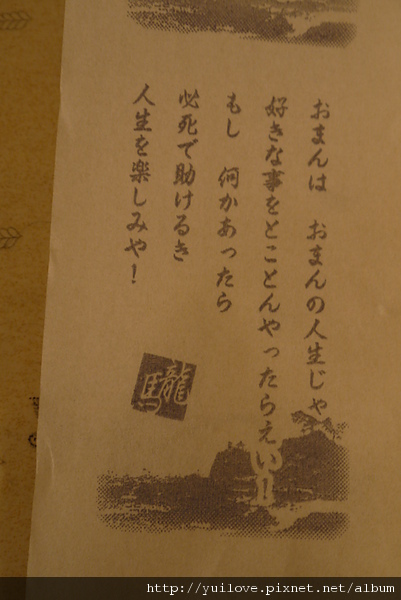 おまんは　おまんの人生じゃ
好きな事をとことんやったらえい!!
もし　何かあったら
必死で助けるき
人生を楽しみや！
龍馬
http://yuilove.pixnet.net/album